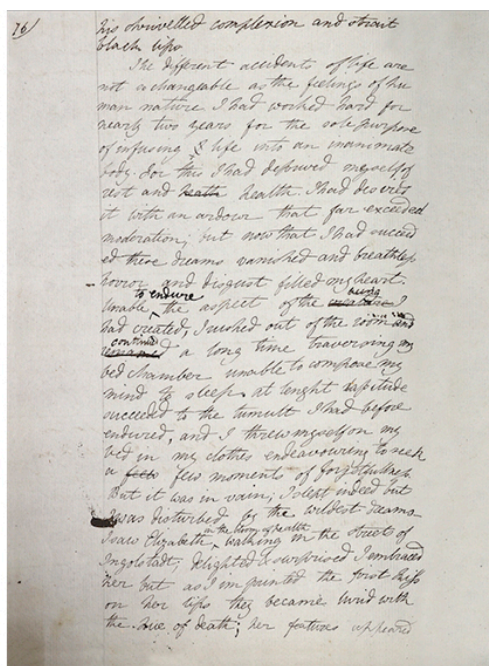 76)
his shrivelled complexion and strait
black lips
The different accidents of life are
not so changeable as the feelings of hu
man nature I had worked hard for
nearly two years for the sole purpose
of infusing life into an inanimate
body. For this I had deprived myself of
rest and heath health. I had desired
it with an ardour that far exceeded
moderation; but now that I had succeed
ed these dreams vanished and breathless
horror and disgust filled my heart.
to endure being
Unable the aspect of the creature I
had created, I rushed out of the room and
continued
remained a long time traversing my
bed chamber unable to compose my
mind to sleep. at lenght lassitude
succeeded to the tumult I had before
endured, and I threw myself on my
bed in my clothes endeavouring to seek
a few moments of forgetfullness
But it was in vain; I slept indeed but
I was disturbed by the wildest dreams
in the bloom of health
I saw Elizabeth, walking in the street of
Ingolstadt; delighted & surprised I embraced
her but as I imprinted the first kiss
on her lips they became livid with
the hue of death; her features appeared